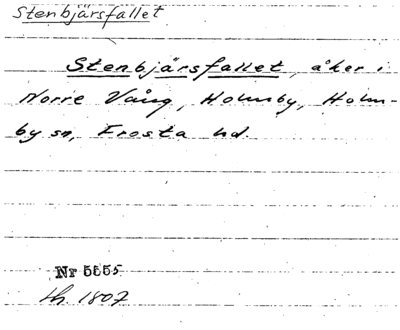 Stenbjärsfallet
Stenbjärsfallet, åker i
Norre Vång, Holmby, Holm-
by sn, Frosta hd.
Nr 5555
Lh. 1807